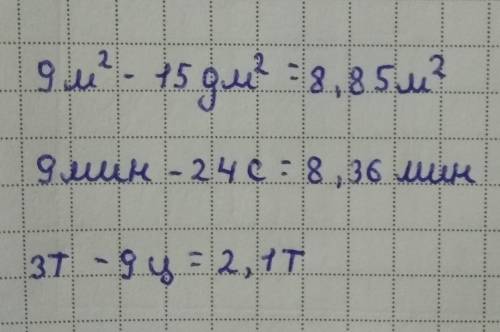 9 м² - 15 дм² = 8,85 м²
9 мин - 24 с = 8,36 мин
3т - 9 ц = 2,1т